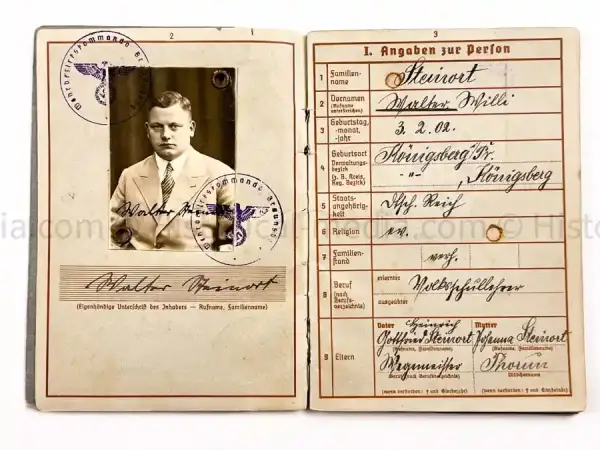 2
Wehrbezirkskommando
Walter
Wehrbezirkskommando Braunsb
Walter Steinort
(Eigenhändige Unterschrift des Inhabers — Rufname, Familienname)
3
I. Angaben zur Person
1 Familien-
name
Steinort
2 Vornamen
(Rufname
unterstreichen)
Walter Willi
3 Geburtstag,
-monat,
-jahr
3. 2. 02.
4 Geburtsort
Verwaltungs-
bezirk
(z. B. Kreis,
Reg. Bezirk)
Königsberg/Pr.
-"- , Königsberg
5 Staats-
angehörig-
keit
Dtsch. Reich
6 Religion
ev.
7 Familien-
stand
verh.
8 Beruf
(nach
Berufs-
verzeichnis)
erlernter
Volksschullehrer
ausgeübter
9 Eltern
Vater Heinrich
Gottfried Steinort
(Rufname, Familienname)
Wegemeister
(Beruf nach Berufsverzeichnis)
(wenn verstorben: † und Sterbejahr)
Mutter
Johanna Steinort
(Rufname, Familienname)
Thorun
Mädchenname
(wenn verstorben: † und Sterbejahr)